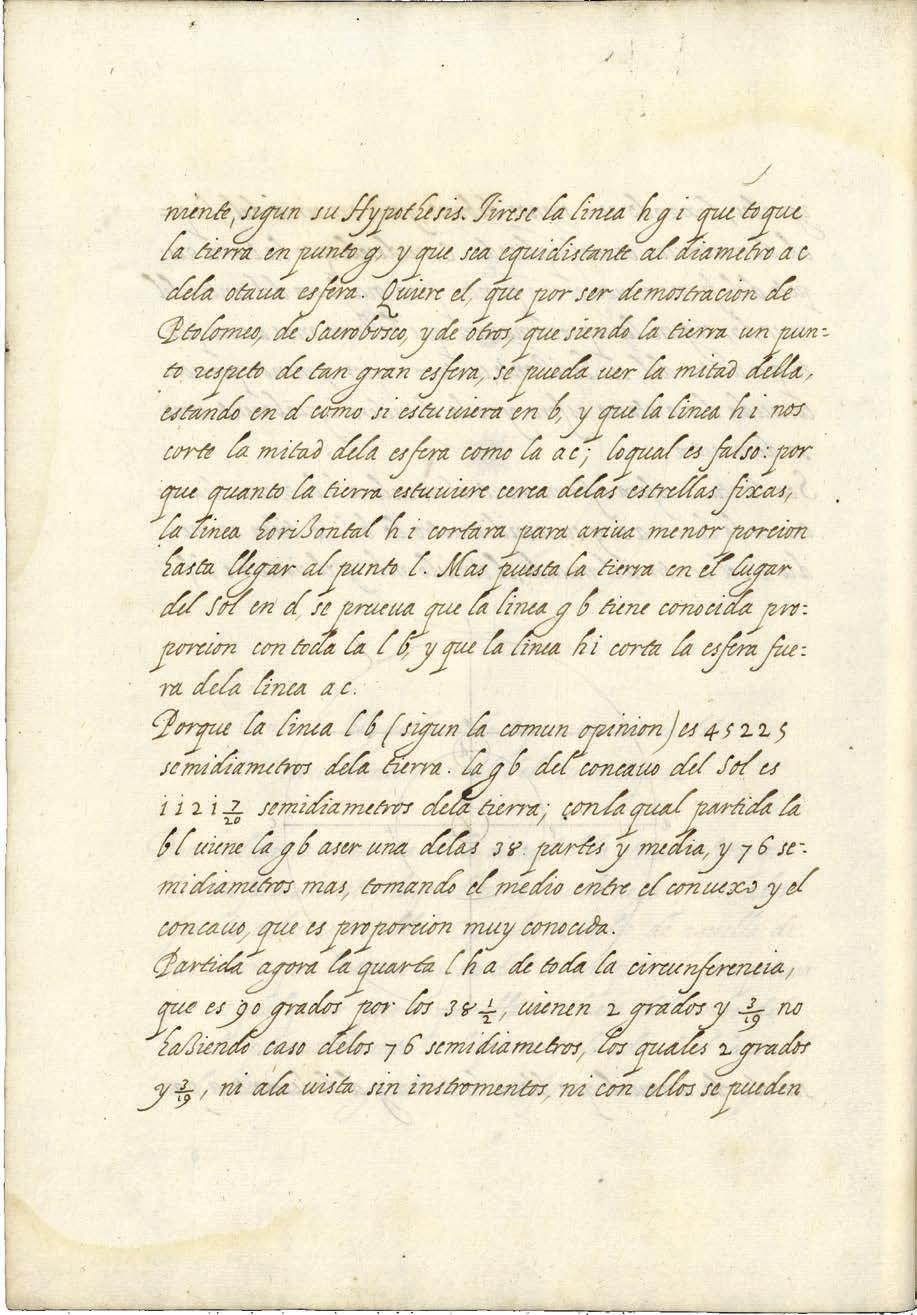 niente, sigun su Hypothesis. Tirese la linea h g i que toque
la tierra en punto g, y que sea equidistante al diametro a c
dela otaua esfera. Quiere el, que por ser demostracion de
Ptolomeo, de Sacrobosco, y de otros, que siendo la tierra un pun-
to respeto de tan gran esfera, se pueda uer la mitad della,
estando en d como si estuuiera en b, y que la linea h i nos
corte la mitad dela esfera como la a c; loqual es falso: por
que quanto la tierra estuuiere cerca delas estrellas fixas,
la linea horizontal h i cortara para ariua menor porcion
hasta llegar al punto l. Mas puesta la tierra en el lugar
del Sol en d, se prueua que la linea g b tiene conocida pro-
porcion con toda la l b, y que la linea h i corta la esfera fue-
ra dela linea a c.
Porque la linea l b (sigun la comun opinion) es 45225
semidiametros dela tierra. la g b del concauo del Sol es
1121 7/20 semidiametros dela tierra; con la qual partida la
b l uiene la g b a ser una delas 38 partes y media, y 76 se-
midiametros mas, tomando el medio entre el conuexo y el
concauo, que es proporcion muy conocida.
Partida agora la quarta l h a de toda la circunferencia,
que es 90 grados por los 38 1/2, uienen 2 grados y 3/19 no
haziendo caso delos 76 semidiametros, los quales 2 grados
y 3/19, ni ala uista sin instromentos, ni con ellos se pueden